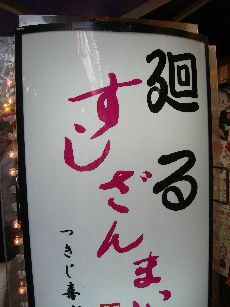 廻る
すしざんまい
つきじ喜